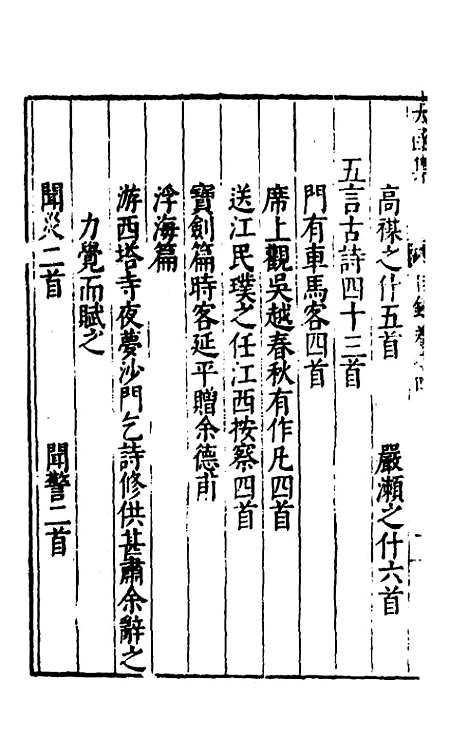 高禖之什五首 嚴瀬之什六首
五言古詩四十三首
門有車馬客四首
席上觀吳越春秋有作凡四首
送江民璞之任江西按察四首
寶劍篇時客延平贈余德甫
浮海篇
游西塔寺夜夢沙門乞詩修供甚肅余辭之
力覺而賦之
聞災二首 聞警二首